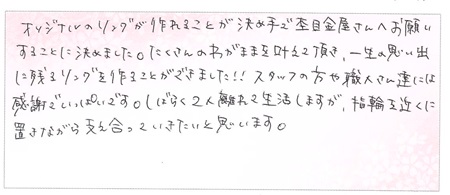 オリジナルのリングが作れることが決め手で杢目金屋さんへお願い
することに決めました。たくさんのわがままを叶えて頂き、一生の思い出
に残るリングを作ることができました!! スタッフの方や職人さん達には
感謝でいっぱいです。しばらく2人離れて生活しますが、指輪を近くに
置きながら支え合っていきたいと思います。